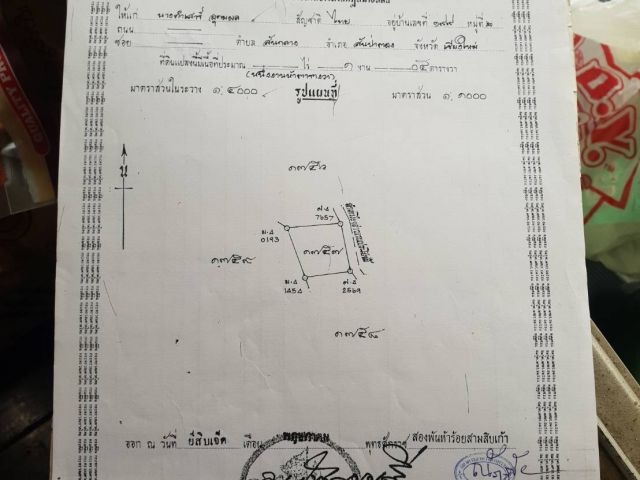 ให้แก่ นางคำแสงสี อุดมผล สัญชาติ ไทย อยู่บ้านเลขที่ ๑๙๙ หมู่ที่ ๒
ถนน
ซอย ตำบล สันกลาง อำเภอ สันป่าตอง จังหวัด เชียงใหม่
ที่ดินแปลงนี้มีเนื้อที่ประมาณ ไร่ ๑ งาน ๐๕ ตารางวา
(หนึ่งงานห้าตารางวา)
มาตราส่วนในระวาง ๑: ๔๐๐๐ รูปแผนที่ มาตราส่วน ๑: ๑๐๐๐
น
๑๗๕๖
ส.๔
7657
ม.๔
0193
๑๗๕๗
๑๗๕๙
ม.๔
1454
ส.๔
2569
๑๗๕๘
ออก ณ วันที่ ยี่สิบเจ็ด เดือน พฤษภาคม พุทธศักราช สองพันห้าร้อยสามสิบเก้า
QUALITY PR